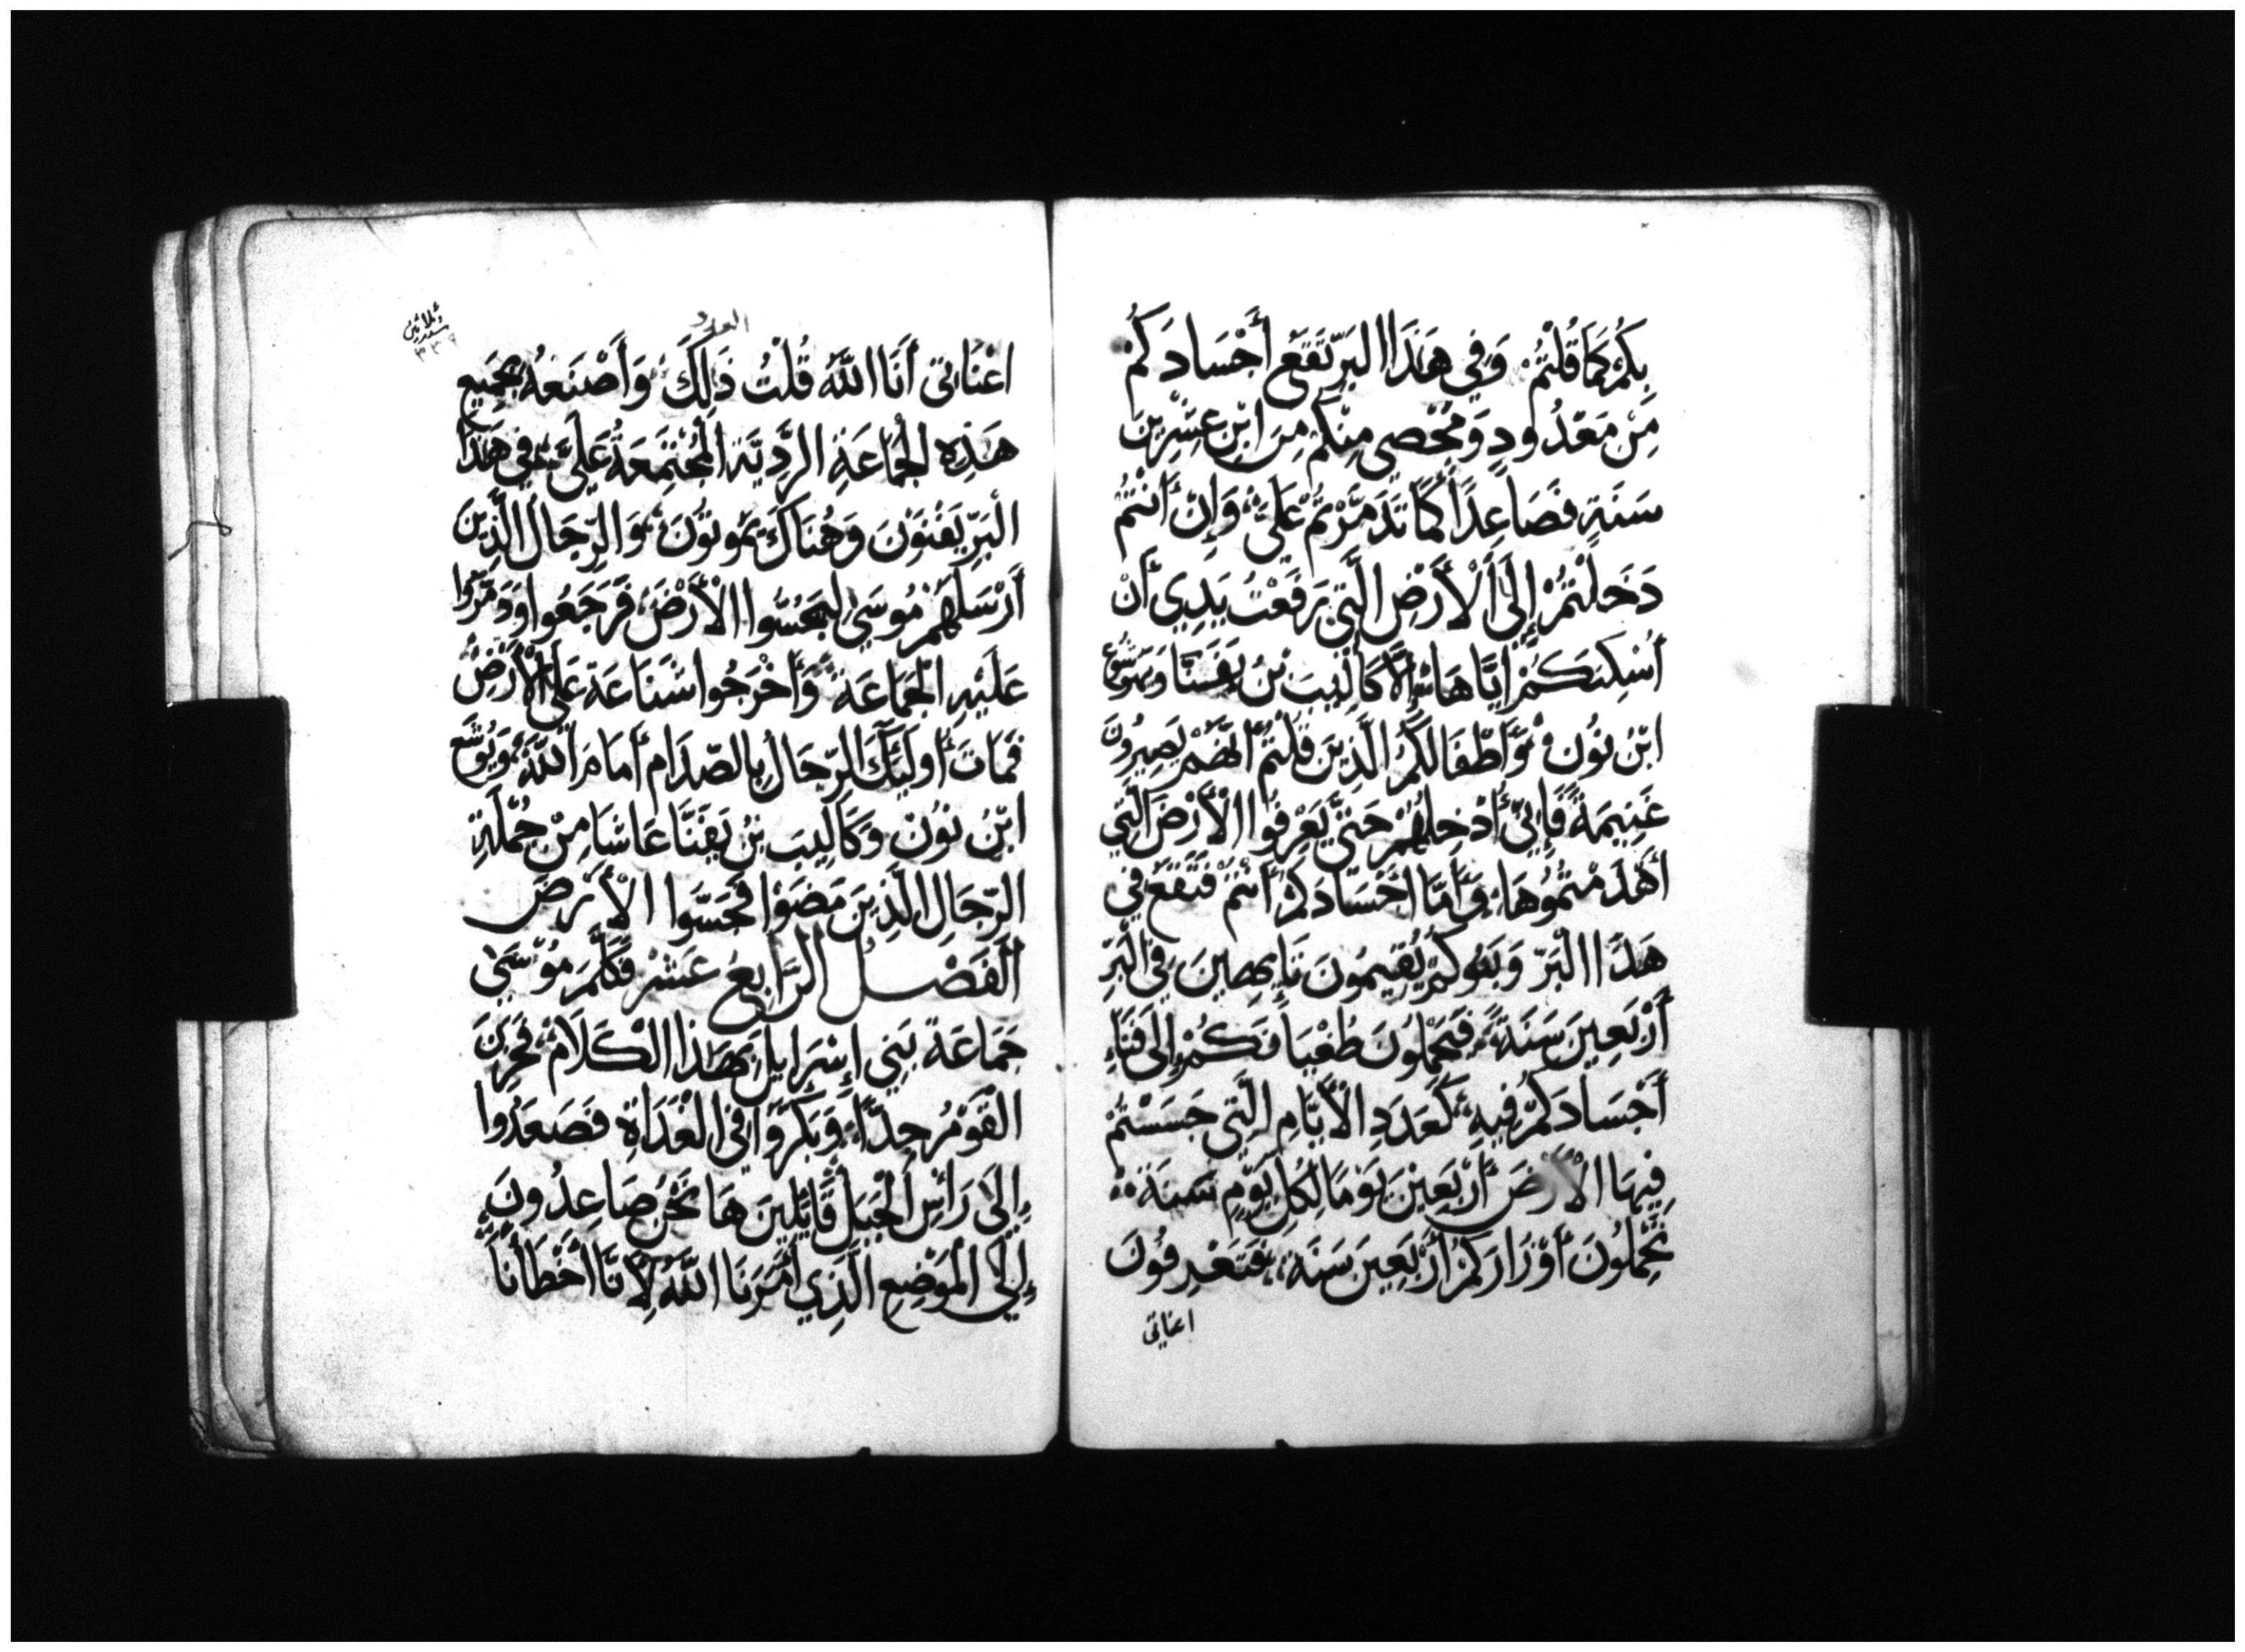 بِكُمْ كَمَا قُلْتُمْ وَفِي هَذَا البَرِّ تَقَعُ أَجْسَادَكُمْ
مِنْ مَعْدُودٍ وَمُحْصِي مِنْكُمْ مِنَ ابْنِ عِشْرِينَ
سَنَةٍ فَصَاعِدًا كَمَا تَذَمَّرْتُمْ عَلَيَّ وَإِنْ أَنْتُمْ
دَخَلْتُمْ إِلَى الْأَرْضِ الَّتِي رَفَعْتُ يَدِي أَنْ
أُسْكِنَكُمْ إِيَّاهَا إِلَّا كَالِيبَ بْنُ يَفَنَّا وَيَشُوعُ
ابْنُ نُونْ وَأَطْفَالَكُمُ الَّذِينَ قُلْتُمْ أَنَّهُمْ يَصِيرُونَ
غَنِيمَةً فَإِنِّي أُدْخِلُهُمْ حَتَّى يَعْرِفُوا الْأَرْضَ الَّتِي
أَهْذَمْتُمُوهَا وَأَمَّا أَجْسَادَكُمْ أَنْتُمْ فَتَقَعُ فِي
هَذَا الْبَرِّ وَبَنُوكُمْ يُقِيمُونَ تَايِهِينَ فِي الْبَرِّ
أَرْبَعِينَ سَنَةً فَتَحْمِلُونَ طُغْيَانَكُمْ إِلَى فَنَاءِ
أَجْسَادَكُمْ فِيهِ كَعَدَدِ الْأَيَّامِ الَّتِي جَسَسْتُمْ
فِيهَا الْأَرْضَ أَرْبَعِينَ يَوْمًا لِكُلِّ يَوْمٍ سَنَةً
تَحْمِلُونَ أَوْزَارَكُمْ أَرْبَعِينَ سَنَةً فَتَعْرِفُونَ
اعناتي
العدد
اعْنَاتِي أَنَا اللَّهَ قُلْتُ ذَلِكَ وَأَصْنَعُهُ بِجَمِيعِ
هَذِهِ الْجَمَاعَةِ الرَّدِيَّةِ الْمُجْتَمِعَةُ عَلَيَّ فِي هَذَا
الْبَرِّ يَفْنَوْنَ وَهُنَاكَ يَمُوتُونَ وَالرِّجَالُ الَّذِينَ
أَرْسَلَهُمْ مُوسَى لِيَجُسُّوا الْأَرْضَ فَرَجَعُوا وَدَمَّرُوا
عَلَيْهِ الْجَمَاعَةَ وَأَخْرَجُوا شَنَاعَةَ عَلَى الْأَرْضِ
فَمَاتَ أُولَيِكَ الرِّجَالُ بِالصِّدَامِ أَمَامَ اللَّهِ وَيُوشَعُ
ابْنُ نُونْ وَكَالِيبَ بْنُ يَفَنَّا عَاشَا مِنْ جُمْلَةِ
الرِّجَالِ الَّذِينَ مَضَوْا فَجَسَّوا الْأَرْضَ
الْفَصْلُ الرَّابِعُ عَشْرُ فَكَلَّمَ مُوسَى
جَمَاعَةَ بَنِي إِسْرَايِلَ بِهَذَا الْكَلَامْ فَحَزِنَ
الْقَوْمُ جِدًّا وَبَكَّرُوا فِي الْغَدَاةِ فَصَعَدُوا
إِلَى رَأْسِ الْجَبَلِ قَائِلِينَ هَا نَحْنُ صَاعِدُونَ
إِلَى الْمَوْضِعِ الَّذِي أَمَرَنَا اللَّهُ لِأَنَّا أَخْطَانَا